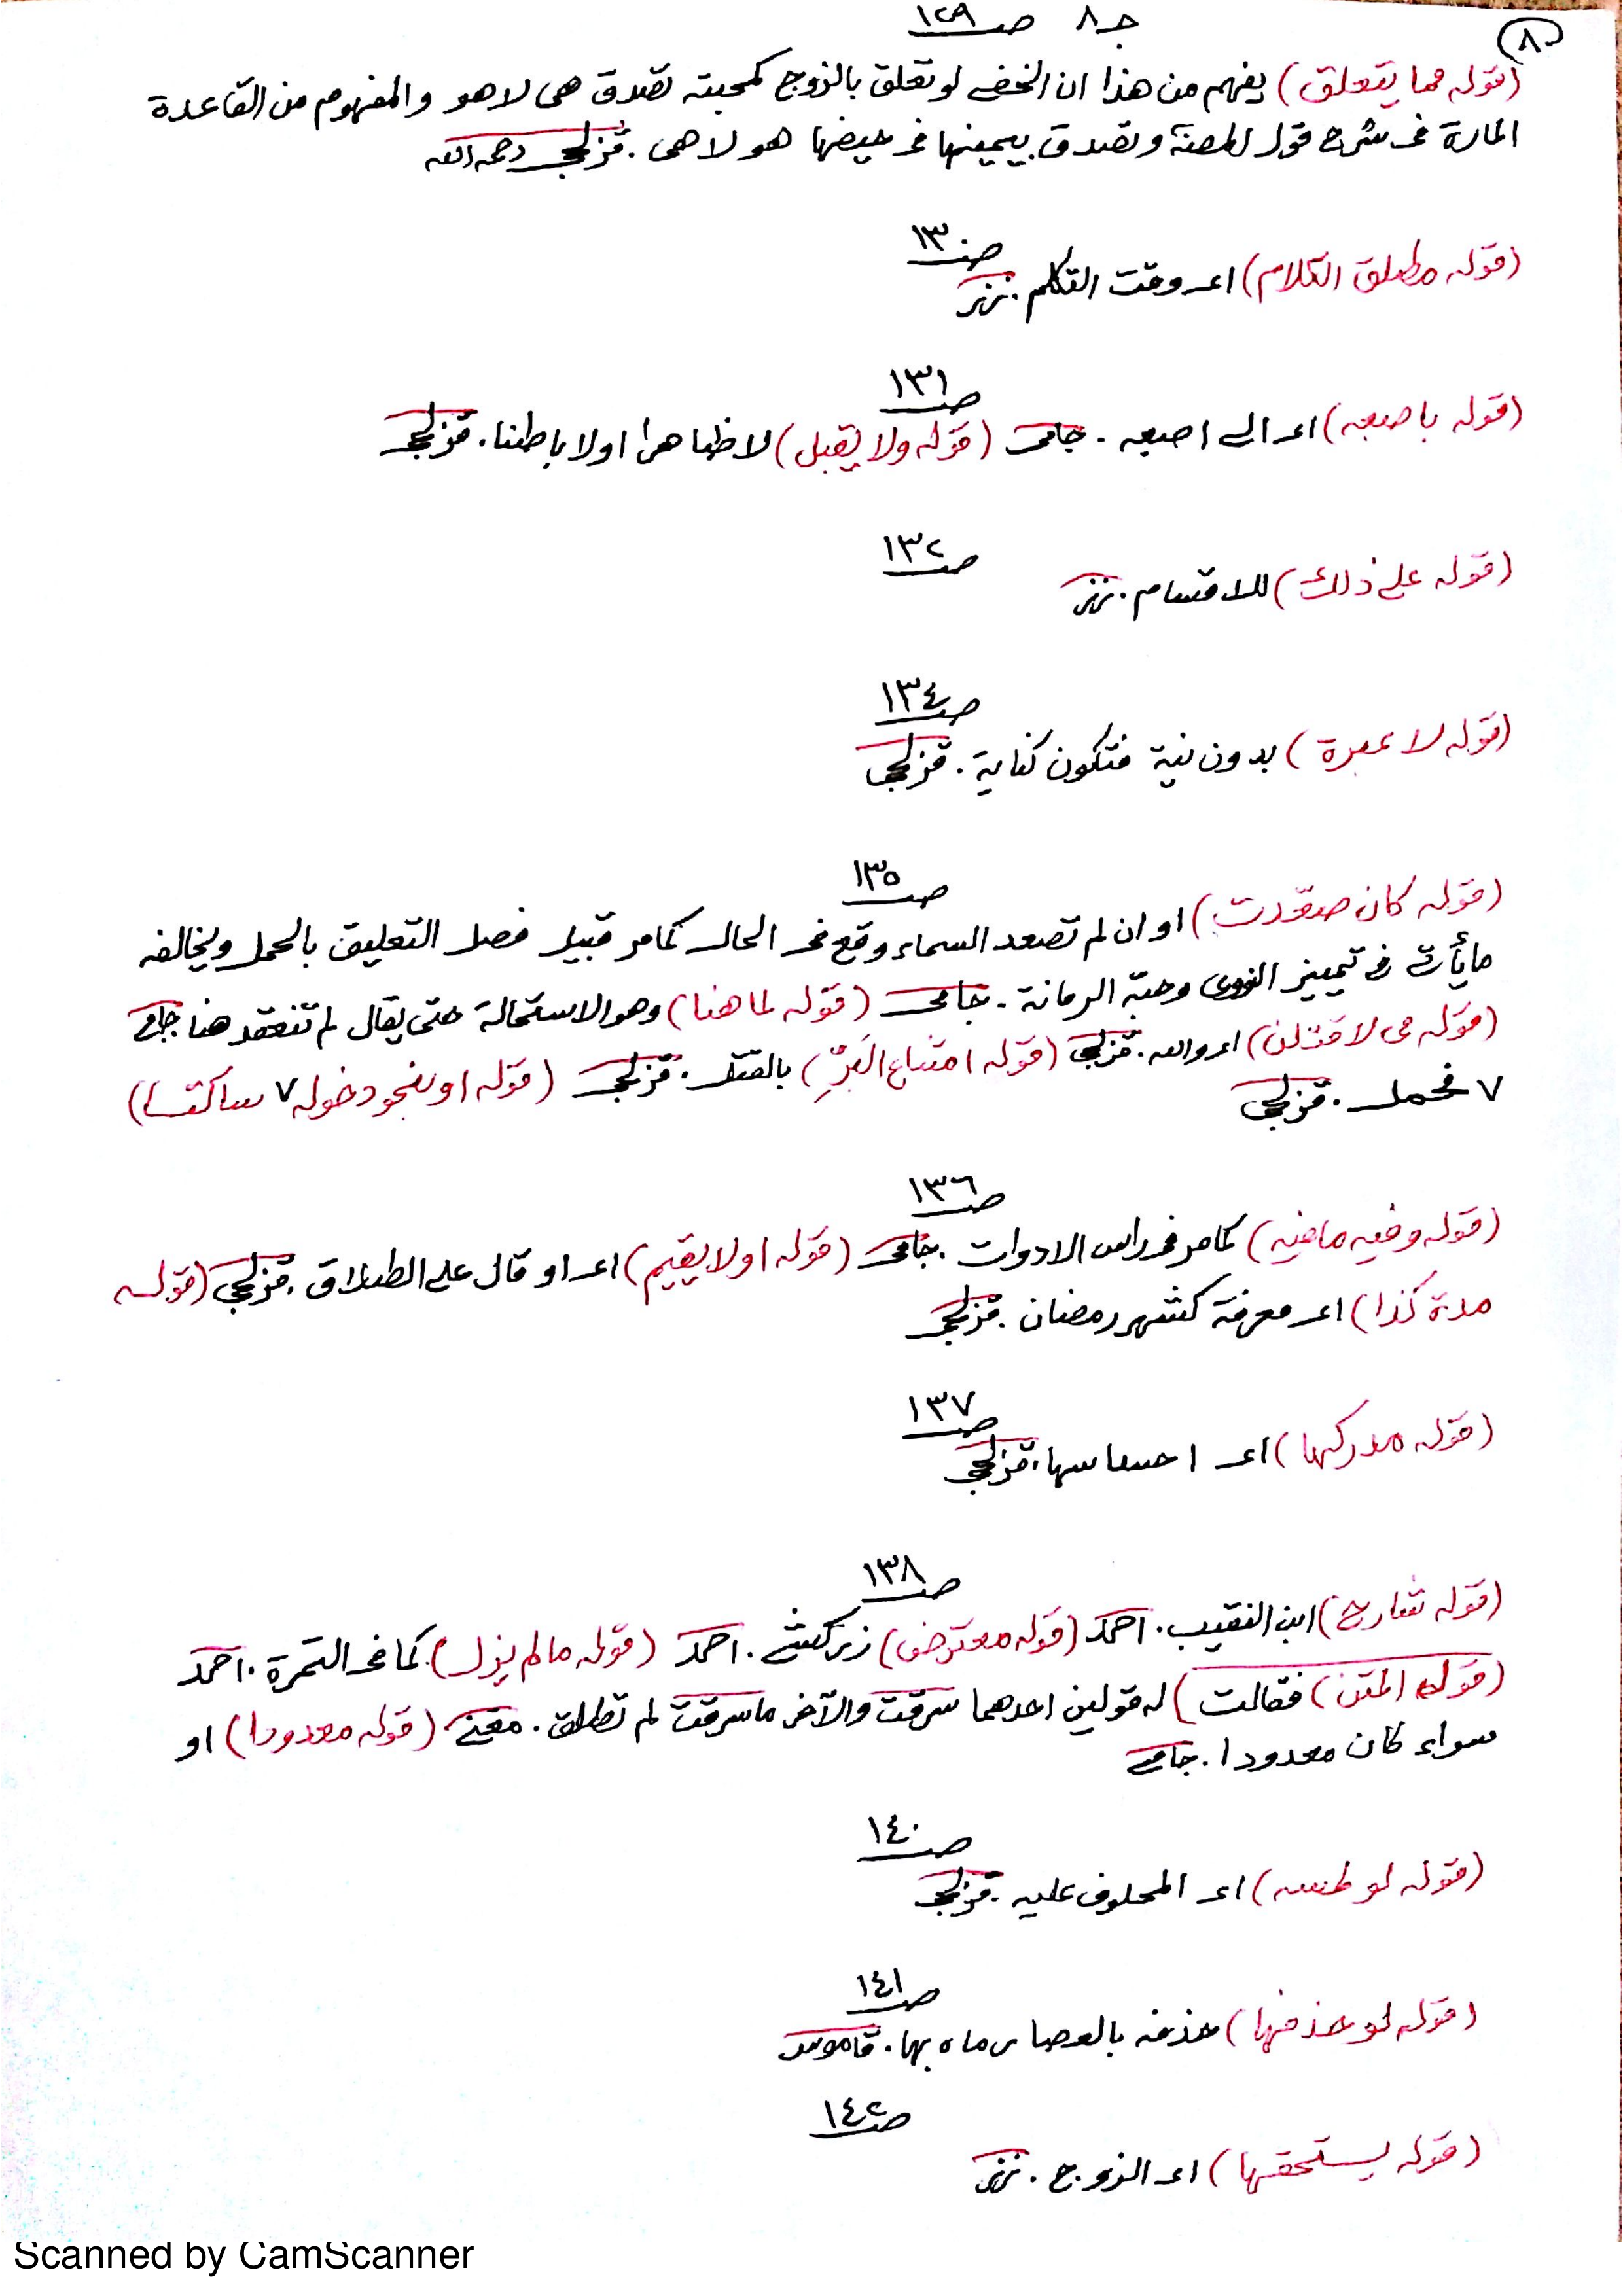 ٨٠
جـ ٨ صـ ١٢٩
(قوله مما يتعلق) يفهم من هذا ان الخفي لو تعلق بالزوج كمحبته تصدق هى لا هو والمفهوم من القاعدة
المارة فى شرح قول المصنف وتصدق بيمينها فى حيضها هو لا هى . قزلجى رحمه الله
صـ ١٣٠
(قوله مطلق الكلام) اى وقت التكلم .
صـ ١٣١
(قوله باصبعه) اى الى اصبعه . جامى (قوله ولا يقبل) لا ظاهرا ولا باطنا . قزلجى
صـ ١٣٢
(قوله على ذلك) للاقسام .
صـ ١٣٤
(قوله لا عبرة) بدون نية فتكون كناية . قزلجى
صـ ١٣٥
(قوله كان صعدت) او ان لم تصعد السماء وقع فى الحال كما مر قبيل فصل التعليق بالحمل ويخالفه
ما يأتى فى تمييز النوى وحبة الرمانة . جامى (قوله لما هنا) وهو الاستحالة حتى يقال لم تنعقد هنا جامى
(قوله فى لاقتلن) اى والله . قزلجى (قوله امتناع البَرِّ) بالقتل . قزلجى (قوله او نحو دخوله ٧ ساكتا)
٧ فحمل . قزلجى
صـ ١٣٦
(قوله وفيه ما فيه) كما مر فى راس الادوات . جامى (قوله او لا يقيم) اى او قال على الطلاق . قزلجى (قوله
مدة كذا) اى معرفة كشهر رمضان . قزلجى
صـ ١٣٧
(قوله مدركها) اى احساسها . قزلجى
صـ ١٣٨
(قوله شارح) ابن النقيب . احمد (قوله معترض) زركشى . احمد (قوله ما لم يزل) كما فى التمرة . احمد
(قوله المتن) فقالت) له قولين احدهما سرقت والآخر ما سرقت لم تطلق . مغنى (قوله معدودا) او
سواء كان معدودا . جامى
صـ ١٤٠
(قوله لو طسه) اى المحلوف عليه . قزلجى
صـ ١٤١
(قوله لو حذفها) حذفه بالعصا رماه بها . قاموس
صـ ١٤٢
(قوله يستحقها) اى الزوج .
Scanned by CamScanner